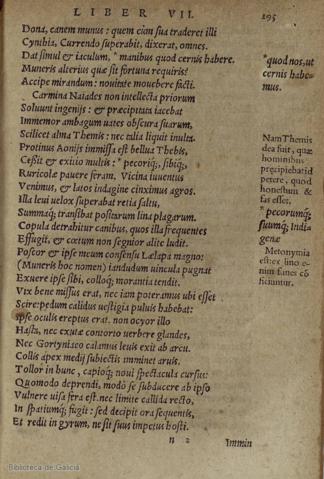 LIBER VII. 195
Dona, canem munus: quem cùm sua traderet illi
Cynthia, Currendo superabit, dixerat, omnes.
Dat simul & iaculum, * manibus quod cernis habere.
Muneris alterius quæ sit fortuna requiris?
Accipe mirandum: nouitate mouebere facti.
Carmina Naiades non intellecta priorum
Soluunt ingenijs: & præcipitata iacebat
Immemor ambagum uates obscura suarum,
Scilicet alma Themis: nec talia liquit inulta.
Protinus Aonijs immissa est bellua Thebis,
Cessit & exitio multis: * pecoriq;, sibiq;,
Ruricolæ pauere feram. Vicina iuuentus
Venimus, & latos indagine cinximus agros.
Illa leui uelox superabat retia saltu,
Summaq; transibat positarum lina plagarum.
Copula detrahitur canibus, quos illa sequentes
Effugit, & cœtum non segnior alite ludit.
Poscor & ipse meum consensu Lælapa magno:
(Muneris hoc nomen) iandudum uincula pugnat
Exuere ipse sibi, colloq; morantia tendit.
Vix bene missus erat, nec iam poteramus ubi esset
Scire: pedum calidus uestigia puluis habebat:
Ipse oculis ereptus erat. non ocyor illo
Hasta, nec excutæ contorto uerbere glandes,
Nec Gortyniaco calamus leuis exit ab arcu.
Collis apex medij subiectis imminet aruis.
Tollor in hunc, capioq; noui spectacula cursus:
Quomodo deprendi, modò se subducere ab ipso
Vulnere uisa fera est. nec limite callida recto,
In spatiumq; fugit: sed decipit ora sequentis,
Et redit in gyrum, ne sit suus impetus hosti.
n 2 Immin
*quod nos, ut
cernis habe-
mus.
Nam Themis
dea fuit, quæ
hominibus
præcipiebat id
petere, quod
honestum &
fas esset.
*pecorumq;
suumq; Indi-
genæ
Metonymia
est: ex lino e-
nim funes cõ
ficiuntur.
Biblioteca de Galicia